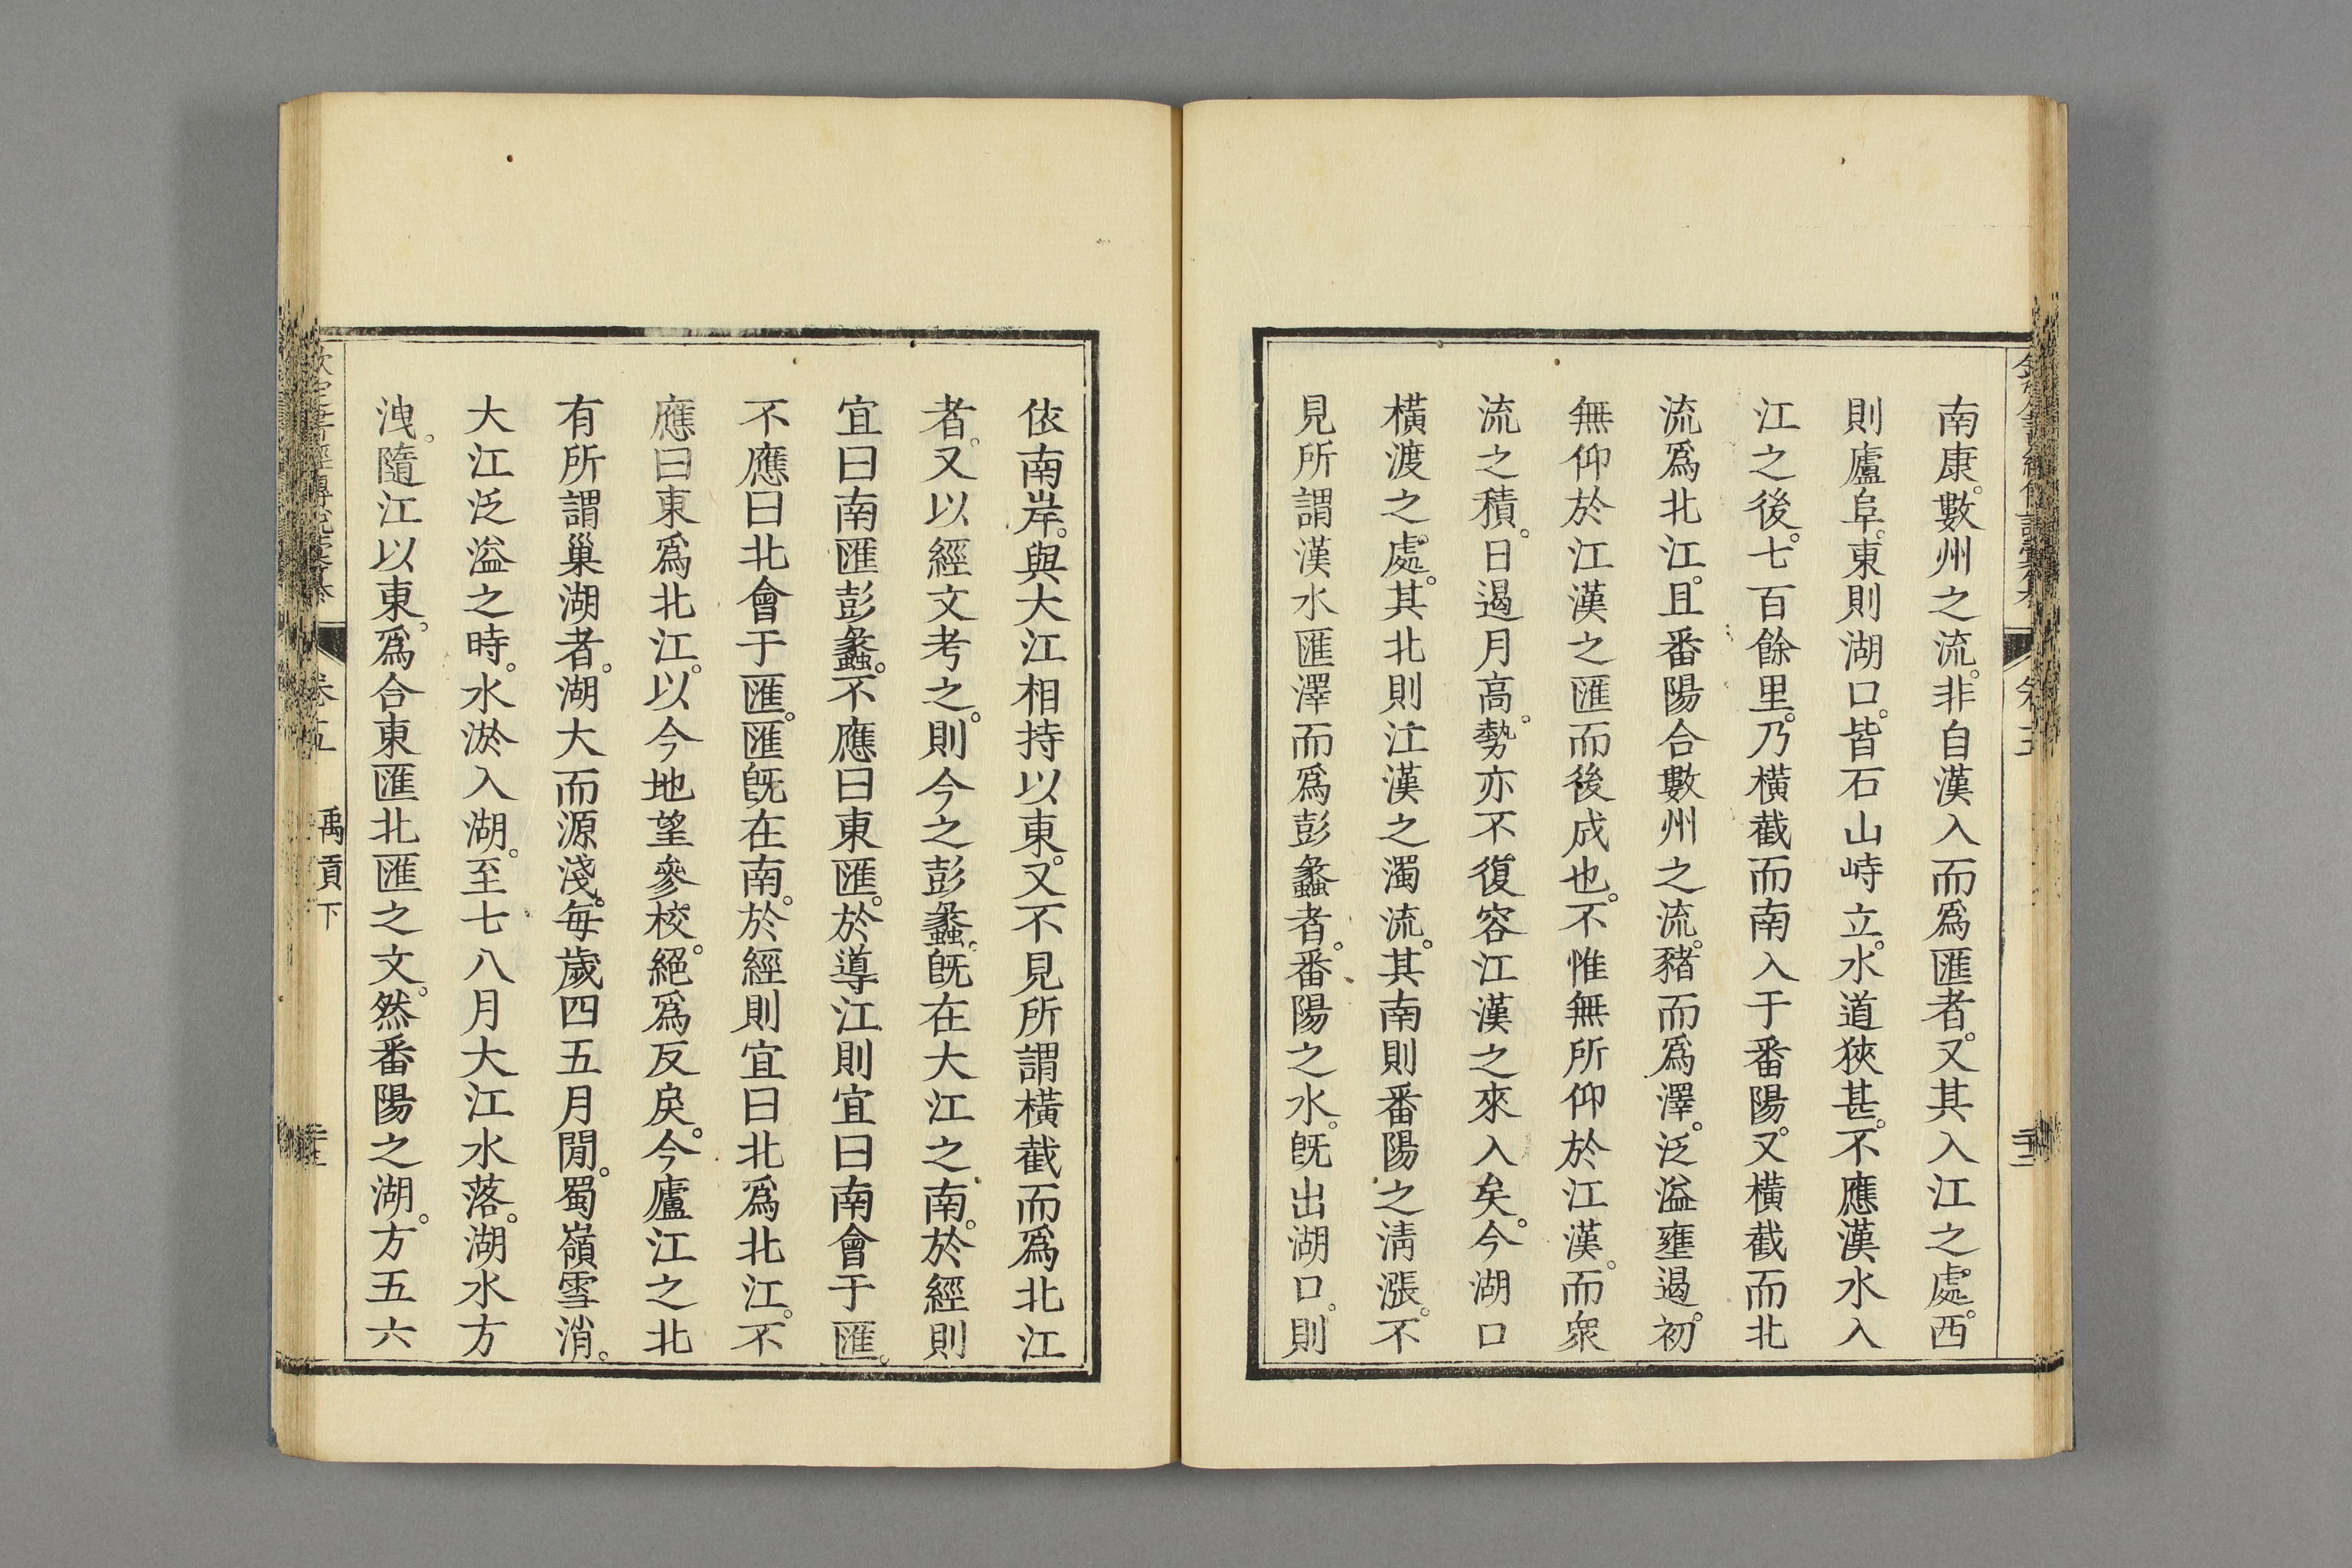 南康。數州之流。非自漢入而爲匯者。又其入江之處。西
則廬阜。東則湖口。皆石山峙立。水道狹甚。不應漢水入
江之後。七百餘里。乃橫截而南入于番陽。又橫截而北
流爲北江。且番陽合數州之流。豬而爲澤。泛溢壅遏。初
無仰於江漢之匯而後成也。不惟無所仰於江漢。而衆
流之積。日遏月高。勢亦不復容江漢之來入矣。今湖口
橫渡之處。其北則江漢之濁流。其南則番陽之清漲。不
見所謂漢水匯澤而爲彭蠡者。番陽之水。旣出湖口。則
依南岸。與大江相持以東。又不見所謂橫截而爲北江
者。又以經文考之。則今之彭蠡。旣在大江之南。於經則
宜曰南匯彭蠡。不應曰東匯。於導江則宜曰南會于匯。
不應曰北會于匯。匯旣在南。於經則宜曰北爲北江。不
應曰東爲北江。以今地望參校。絕爲反戾。今廬江之北
有所謂巢湖者。湖大而源淺。每歲四五月閒。蜀嶺雪消。
大江泛溢之時。水淤入湖。至七八月大江水落。湖水方
洩。隨江以東。爲合東匯北匯之文。然番陽之湖。方五六
欽定書經傳說彙纂 卷五 禹貢下